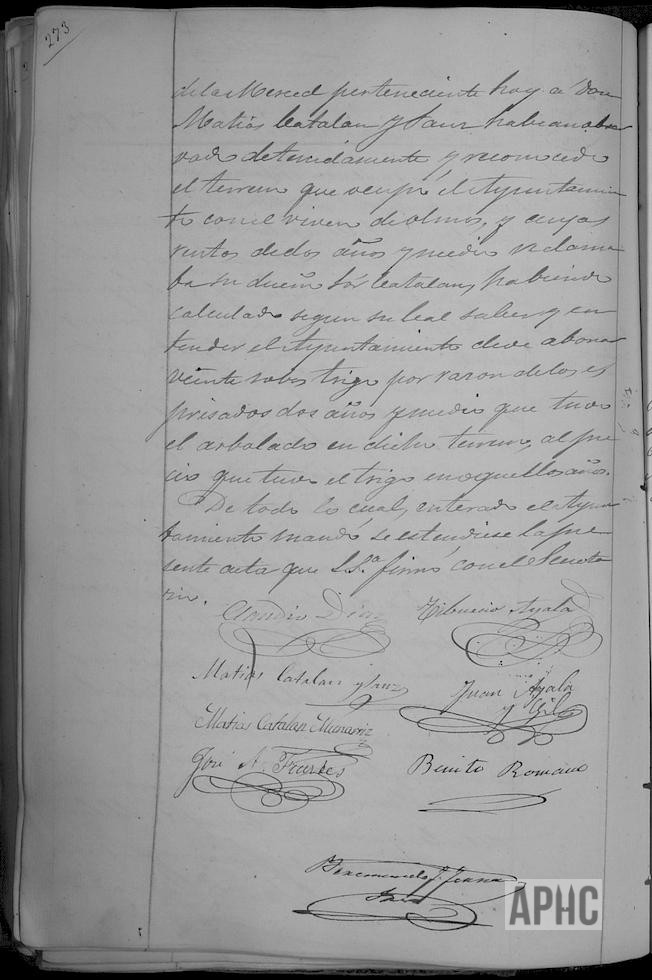 273
de la Merced perteneciente hoy a Don
Matias Catalan y Sanz habian obser
vado detenidamente y reconocido
el terreno que ocupó el Ayuntamien
to con el vivero de olmos, y cuyas
rentas de dos años y medio reclama
ba su dueño Sór Catalan, habiendo
calculado segun su leal saber y en
tender el Ayuntamiento debe abonar
veinte robos trigo por razon de los es
presados dos años y medio que tuvo
el arbolado en dicho terreno, al pre
cio que tuvo el trigo en aquellos años.
De todo lo cual, enterado el Ayun
tamiento mandó se estendiese la pre
sente acta que S.S.ª firmó con el Secreta
rio.
Claudio Diaz
Tiburcio Ayala
Matias Catalan y Sanz
Juan Ayala
y Gil
Matias Catalan Munarriz
José A. Frances
Benito Romano
APHC